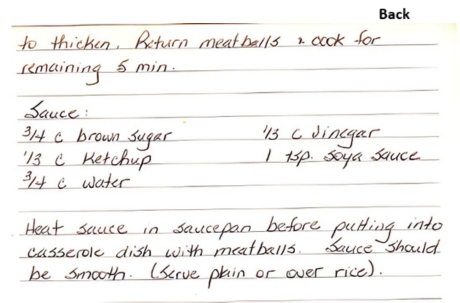 Back
to thicken. Return meatballs & cook for
remaining 5 min.
Sauce:
3/4 c brown sugar 1/3 c Vinegar
1/3 c Ketchup 1 tsp. Soya Sauce
3/4 c water
Heat sauce in saucepan before putting into
casserole dish with meatballs. Sauce should
be smooth. (Serve plain or over rice).